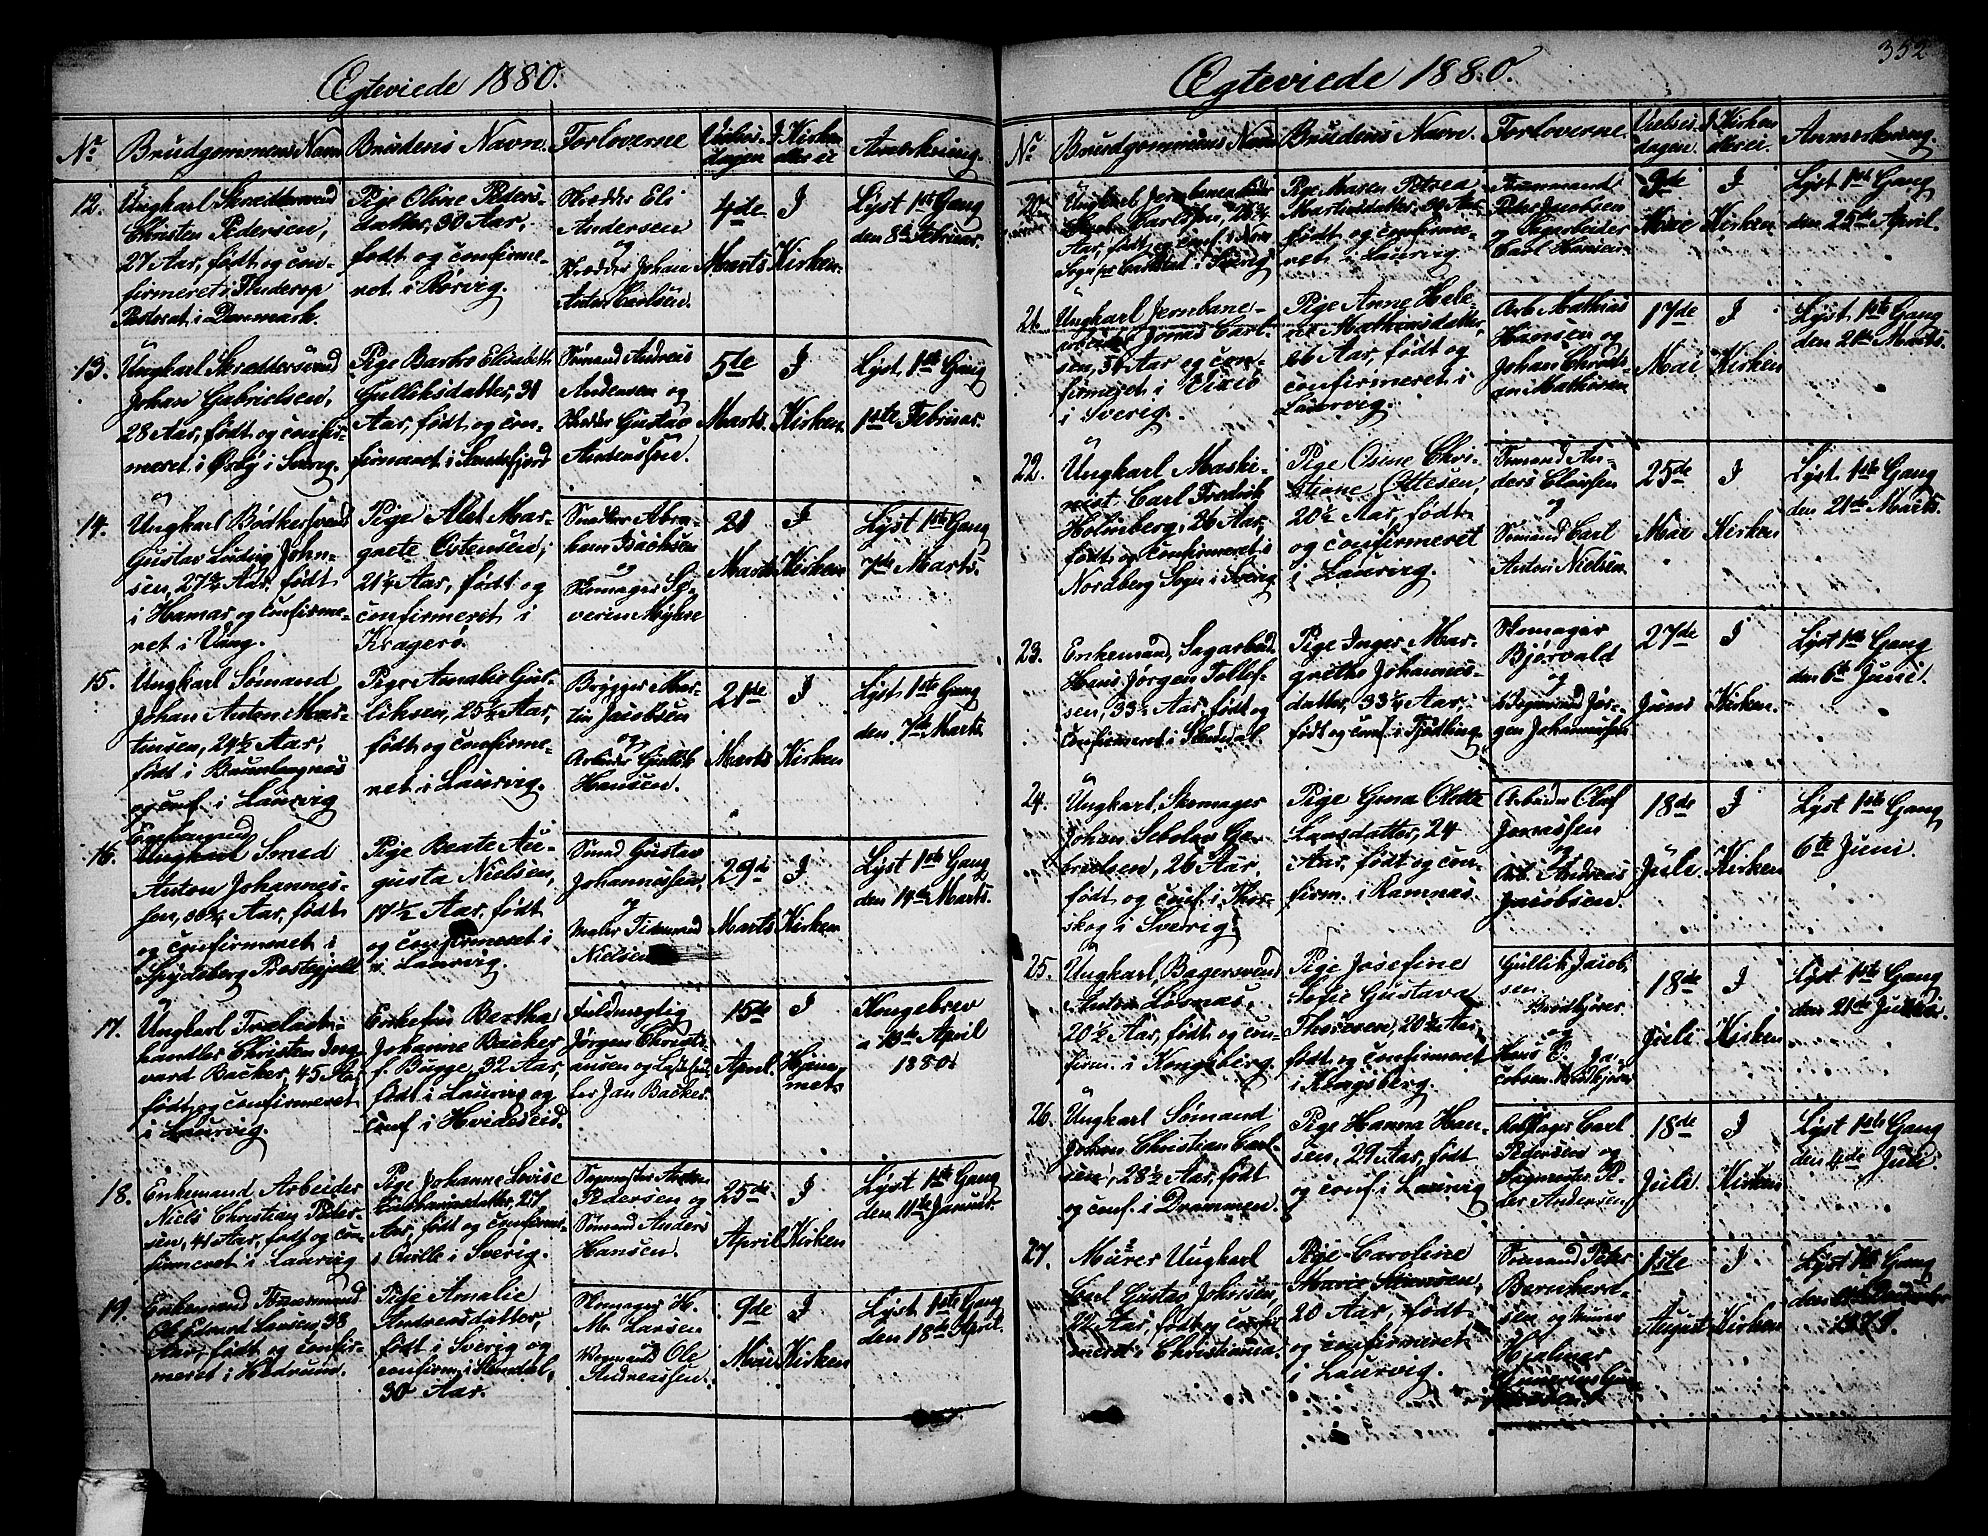 Ægteviede 1880.
Nr Brudgommens Navn Brudens Navn Forloverne Vielses- I Kirken Anmerkning.
dagen eller ei
12. Ungkarl Skræddersvend
Christen Pedersen,
27 Aar, født og con-
firmeret i
Pastorat i Danmark.
Pige Oline Peders-
datter, 30 Aar,
født og confirme-
ret i Rørvig.
Skrædder Eli
Andersen
og
Skrædder Johan
Anton Carlsen.
4de
Marts
I
Kirken
Lyst 1ste Gang
den 8de Februar.
13. Ungkarl Skræddersvend
Johan Gabrielsen,
28 Aar, født og confir-
meret i Ørby i Sverig.
Pige Barbro Elisabeth
Gulliksdatter, 31
Aar, født og con-
firmeret i Sandefjord
Sømand Andreas
Andersen og
Skrædder Gustav
Anderssen.
5te
Marts.
I
Kirken
Lyst 1ste Gang
1ste Februar.
14. Ungkarl Bødkersvend
Gustav Ludvig John-
sen, 27½ Aar, født
i Hamar og confirme-
ret i Vang.
Pige Alet Mar-
grete Ostensen,
21¼ Aar, født og
confirmeret i
Kragerø.
Snedker Abra-
ham Isaksen
og
Skomager Se-
verin Myhre
21
Marts
I
Kirken
Lyst 1ste Gang
7de Marts.
15. Ungkarl Sømand
Johan Anton Mar-
tinsen, 24½ Aar,
født i Brunlangnæs
og conf. i Laurvig
Pige Amalie Gul-
liksen, 25¼ Aar,
født og confirme-
ret i Laurvig.
Brygger Mar-
tin Jacobsen
og
Arbeider Gullik
Hansen.
21de
Marts
I
Kirken
Lyst 1ste Gang
den 7de Marts
16. Enkemand
Ungkarl Smed
Anton Johannes-
sen, Aar, født
og confirmeret i
Spydeberg Præstegjeld
Pige Beate Au-
gusta Nielsen,
19½ Aar, født
og confirmeret i
i Laurvig.
Smed Gustav
Johannessen,
og
Maler Tidemand
Nielsen
29de
Marts
I
Kirken
Lyst 1ste Gang
den 14de Marts.
17. Ungkarl Trælast-
handler Christen Ing-
vard Backer, 45 Aar,
født og confirmeret
i Laurvig.
Enkefru Bertha
Johanne Backer
f. Bugge, 32 Aar,
født i Laurvig og
conf i Hvideseid.
Fuldmægtig
Jørgen Christi-
ansen og
Jan Backer.
15de
April
I
Hjem-
met
Kongebrev
a 13de April
1880.
18. Enkemand Arbeider
Niels Christian Peder-
sen, 41 Aar, født og con-
firmeret i Laurvig
Pige Johanne Lovise
27½
Aar, født og confirme-
i Qville i Sverig.
Sagmester Anders
Pedersen og
Sømand Anders
Hansen.
25de
April
I
Kirken
Lyst 1ste Gang
den 11te Januar.
19. Enkemand Tømmermand
Ole Edvard Larsen, 38
Aar, født og confir-
meret i Hedrum.
Pige Amalie
Andreasdatter,
født i Sverig og
confirm. i
30 Aar.
Skomager H.
M. Larsen
Vognmand Ole
Andreassen.
9de
Mai
I
Kirken
Lyst 1ste Gang
den 18de April.
352
Ægteviede 1880.
Nr Brudgommens Navn Brudens Navn. Forloverne. Vielses- I Kirken Anmerkning.
dagen. eller ei.
20. Ungkarl Jernbanearbeider
Carlsson,
Aar, født og conf. i
Sogn pr Carlstad i Sverig
Pige Maren Petrea
Martinsdatter, Aar
født og confirme-
ret i Laurvig.
Tømmermand
Peter Jacobsen
og Sagarbeider
Carl Hansen
9de
Mai
I
Kirken
Lyst 1ste Gang
den 25de April.
21. Ungkarl Jernbane-
arbeider Jonas Carl-
sen, 34 Aar og con-
firmeret i Vixiö
i Sverig.
Pige Anne Hele-
ne Mathiasdatter,
26 Aar, født og
confirmeret i
Laurvig.
Arb. Mathias
Hansen og
Johan Christi-
an Mathisen
17de
Mai
I
Kirken
Lyst 1ste Gang
den 21de Marts.
22. Ungkarl Maski-
nist Carl Fredrik
Holmberg, 26 Aar,
født og confirmeret i
Nordberg Sogn i Sverig
Pige Osine Chri-
stiane Ottesen,
20½ Aar, født
og confirmeret
i Laurvig.
Sømand An-
ders Clausen
og
Sømand Carl
Anton Nielsen
25de
Mai
I
Kirken
Lyst 1ste Gang
den 21de Marts.
23. Enkemand, Sagarbeid.
Hans Jørgen Tollef-
sen, 33½ Aar, født og
confirmeret i Slemdal
Pige Inger Mar-
grethe Johannes-
datter, 33¼ Aar,
født og conf. i Fjødling.
Skomager
Bjørvald
og
Vognmand Jør-
gen Johannessen
27de
Juni
I
Kirken.
Lyst 1ste Gang
den 6te Juni.
24. Ungkarl, Skomager
Johan Ga-
brielsen, 26 Aar,
født og conf. i Thor-
skog i Sverig.
Pige Gina Olette
Larsdatter, 24
Aar, født og con-
firm. i Ramnæs.
Arbeider Olaf
Jonassen
og
Arb. Andreas
Jacobsen.
18de
Juli
I
Kirken
Lyst 1ste Gang
6te Juni.
25. Ungkarl, Bagersvend
Anton Lomås,
20½ Aar, født og con-
firm. i Kongsberg.
Pige Josefine
Sofie Gustava
Thoresen, 20½ Aar,
født og confirmeret
i Kongsberg.
Gullik Jacob-
sen
Brødkjører
og
Hans E. Ja-
cobsen Brødkjører
18de
Juli
I
Kirken
Lyst 1ste Gang
den 21de Juni.
26. Ungkarl Sømand
Johan Christian Carl-
sen, 28½ Aar, født
og conf. i Drammen.
Pige Hanna Han-
sen, 29 Aar, født
og conf. i Laurvig
Carl
Pedersen og
Sagmester Pe-
der Andersen
18de
Juli.
I
Kirken
Lyst 1ste Gang
den 4de Juli.
27. Murer Ungkarl
Carl Gustav Johnsen,
22 Aar, født og confir-
meret i Christiania.
Pige Caroline
Marie Simensen,
20 Aar, født
og confirmeret
i Laurvig.
Sømand Peter
Bernhard-
sen og murer
Hjalmar
1ste
August
I
Kirken
Lyst 1ste Gang
den
1879.